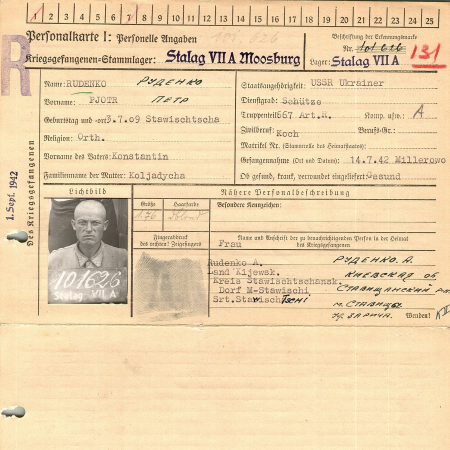 1 2 3 4 5 6 7 8 9 10 11 12 13 14 15 16 17 18 19 20 21 22 23 24 25
Personalkarte I: Personelle Angaben
Kriegsgefangenen-Stammlager: Stalag VII A Moosburg
Beschriftung der Erkennungsmarke
Nr. 101626
Lager: Stalag VII A
131
R
Des Kriegsgefangenen
1. Sept. 1942
Name: RUDENKO РУДЕНКО
Vorname: PJOTR ПЕТР
Geburtstag und -ort 3.7.09 Stawischtscha
Religion: Orth.
Vorname des Vaters: Konstantin
Familienname der Mutter: Koljadycha
Staatsangehörigkeit: USSR Ukrainer
Dienstgrad: Schütze
Truppenteil: 67 Art.R. Komp. usw.: A
Zivilberuf: Koch Berufs-Gr.:
Matrikel Nr. (Stammrolle des Heimatstaates):
Gefangennahme (Ort und Datum): 14.7.42 Millerowo
Ob gesund, krank, verwundet eingeliefert: Gesund
Lichtbild
101626
Stalag VII A
Nähere Personalbeschreibung
Größe Haarfarbe
176 blond
Besondere Kennzeichen:
Fingerabdruck
des rechten! Zeigefingers
Name und Anschrift der zu benachrichtigenden Person in der Heimat
des Kriegsgefangenen
Frau
Rudenko A.
Land Kijewsk.
Kreis Stawischtschansk.
Dorf M-Stawischi
Srt. Stawischtschi
РУДЕНКО. А.
КИЕВСКАЯ ОБ
СТАВИЩАНСКИЙ
м. СТАВИЩЫ
ул. ЗАРИЧА.
Wenden!